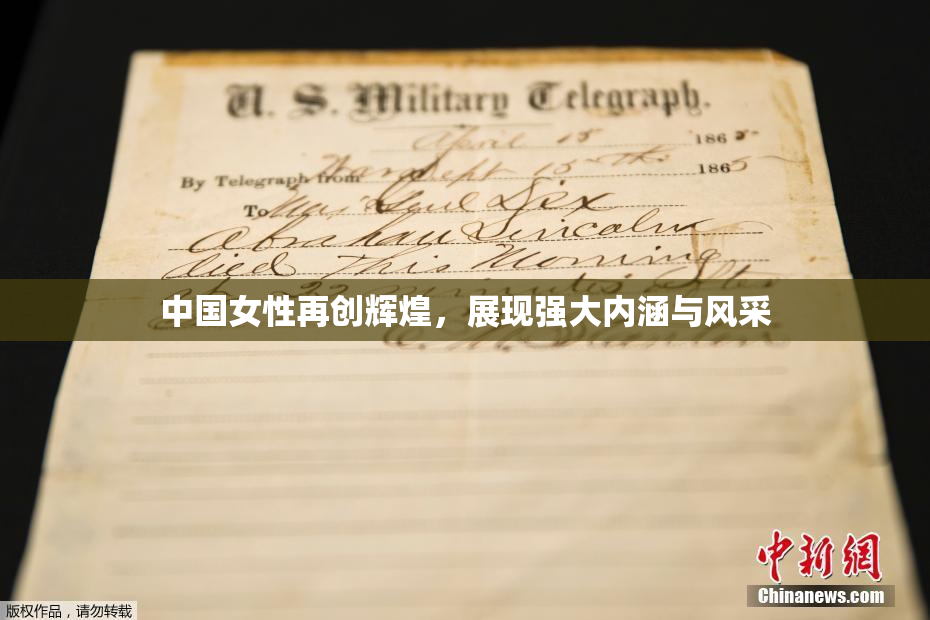 U. S. Military Telegraph.
April 15 1865
By Telegraph from War Dept 15th 1865
To Maj Genl Dix
Abraham Lincoln
died This Morning
at 22 minutes after
中国女性再创辉煌，展现强大内涵与风采
E. M. Stanton
中新网
Chinanews.com
版权作品，请勿转载